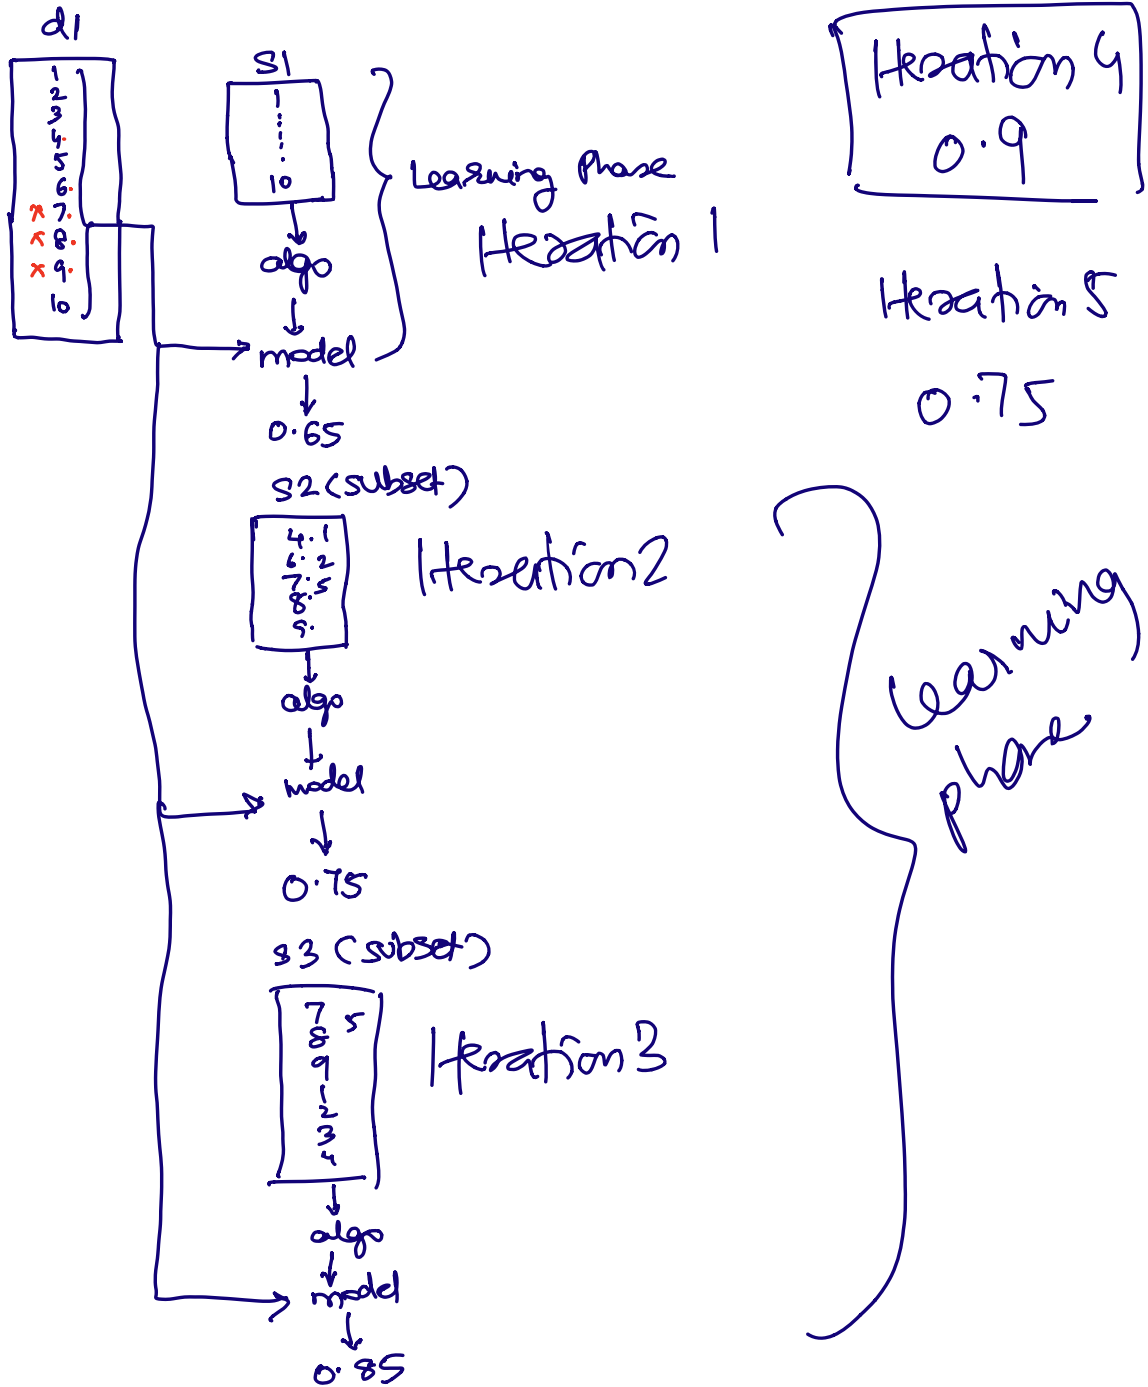 d1
1
2
3
4.
5
6.
x 7.
x 8.
x 9.
10
S1
1
10
algo
model
0.65
Learning Phase
Iteration 1
S2 (subset)
4. 1
6. 2
7. 5
8.
9.
Iteration 2
algo
model
0.75
S3 (subset)
7 5
8
9
1
2
3
4
Iteration 3
algo
model
0.85
Iteration 4
0.9
Iteration 5
0.75
Learning
phase